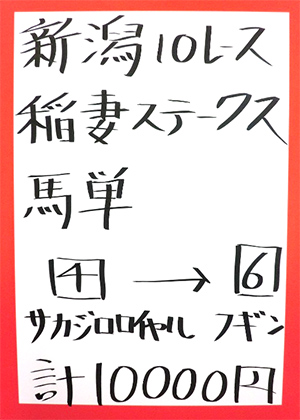 新潟10レース
稲妻ステークス
馬単
4 → 6
サカジロロイヤル フギン
計10000円